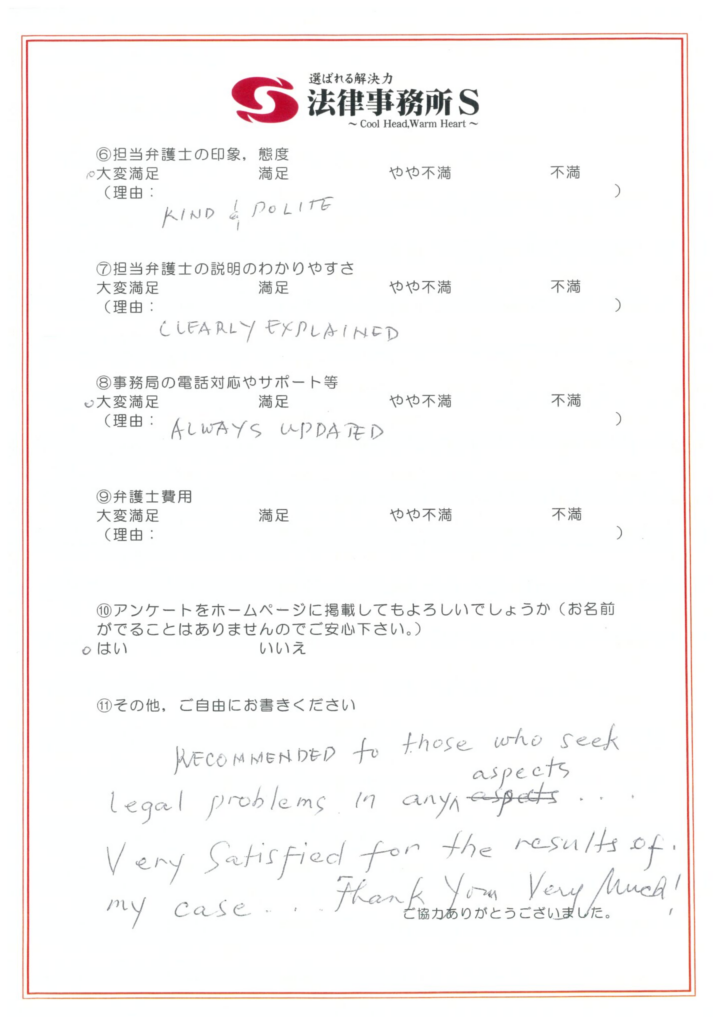 選ばれる解決力
法律事務所S
~ Cool Head,Warm Heart ~
⑥担当弁護士の印象，態度
○大変満足 満足 やや不満 不満
（理由： ）
KIND & POLITE
⑦担当弁護士の説明のわかりやすさ
大変満足 満足 やや不満 不満
（理由： ）
CLEARLY EXPLAINED
⑧事務局の電話対応やサポート等
○大変満足 満足 やや不満 不満
（理由： ）
ALWAYS UPDATED
⑨弁護士費用
大変満足 満足 やや不満 不満
（理由： ）
⑩アンケートをホームページに掲載してもよろしいでしょうか（お名前
がでることはありませんのでご安心下さい。）
○はい いいえ
⑪その他，ご自由にお書きください
RECOMMENDED to those who seek
aspects
legal problems in any^ aspects ...
Very Satisfied for the results of.
my case ... Thank You Very Much!
ご協力ありがとうございました。